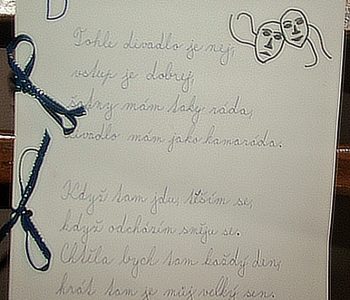 D
Tohle divadlo je nej,
vstup je dobrej,
šatny mám taky ráda,
divadlo mám jako kamaráda.
Když tam jdu, těším se,
když odcházím směju se.
Chtěla bych tam každý den,
hrát tam je můj velký sen.